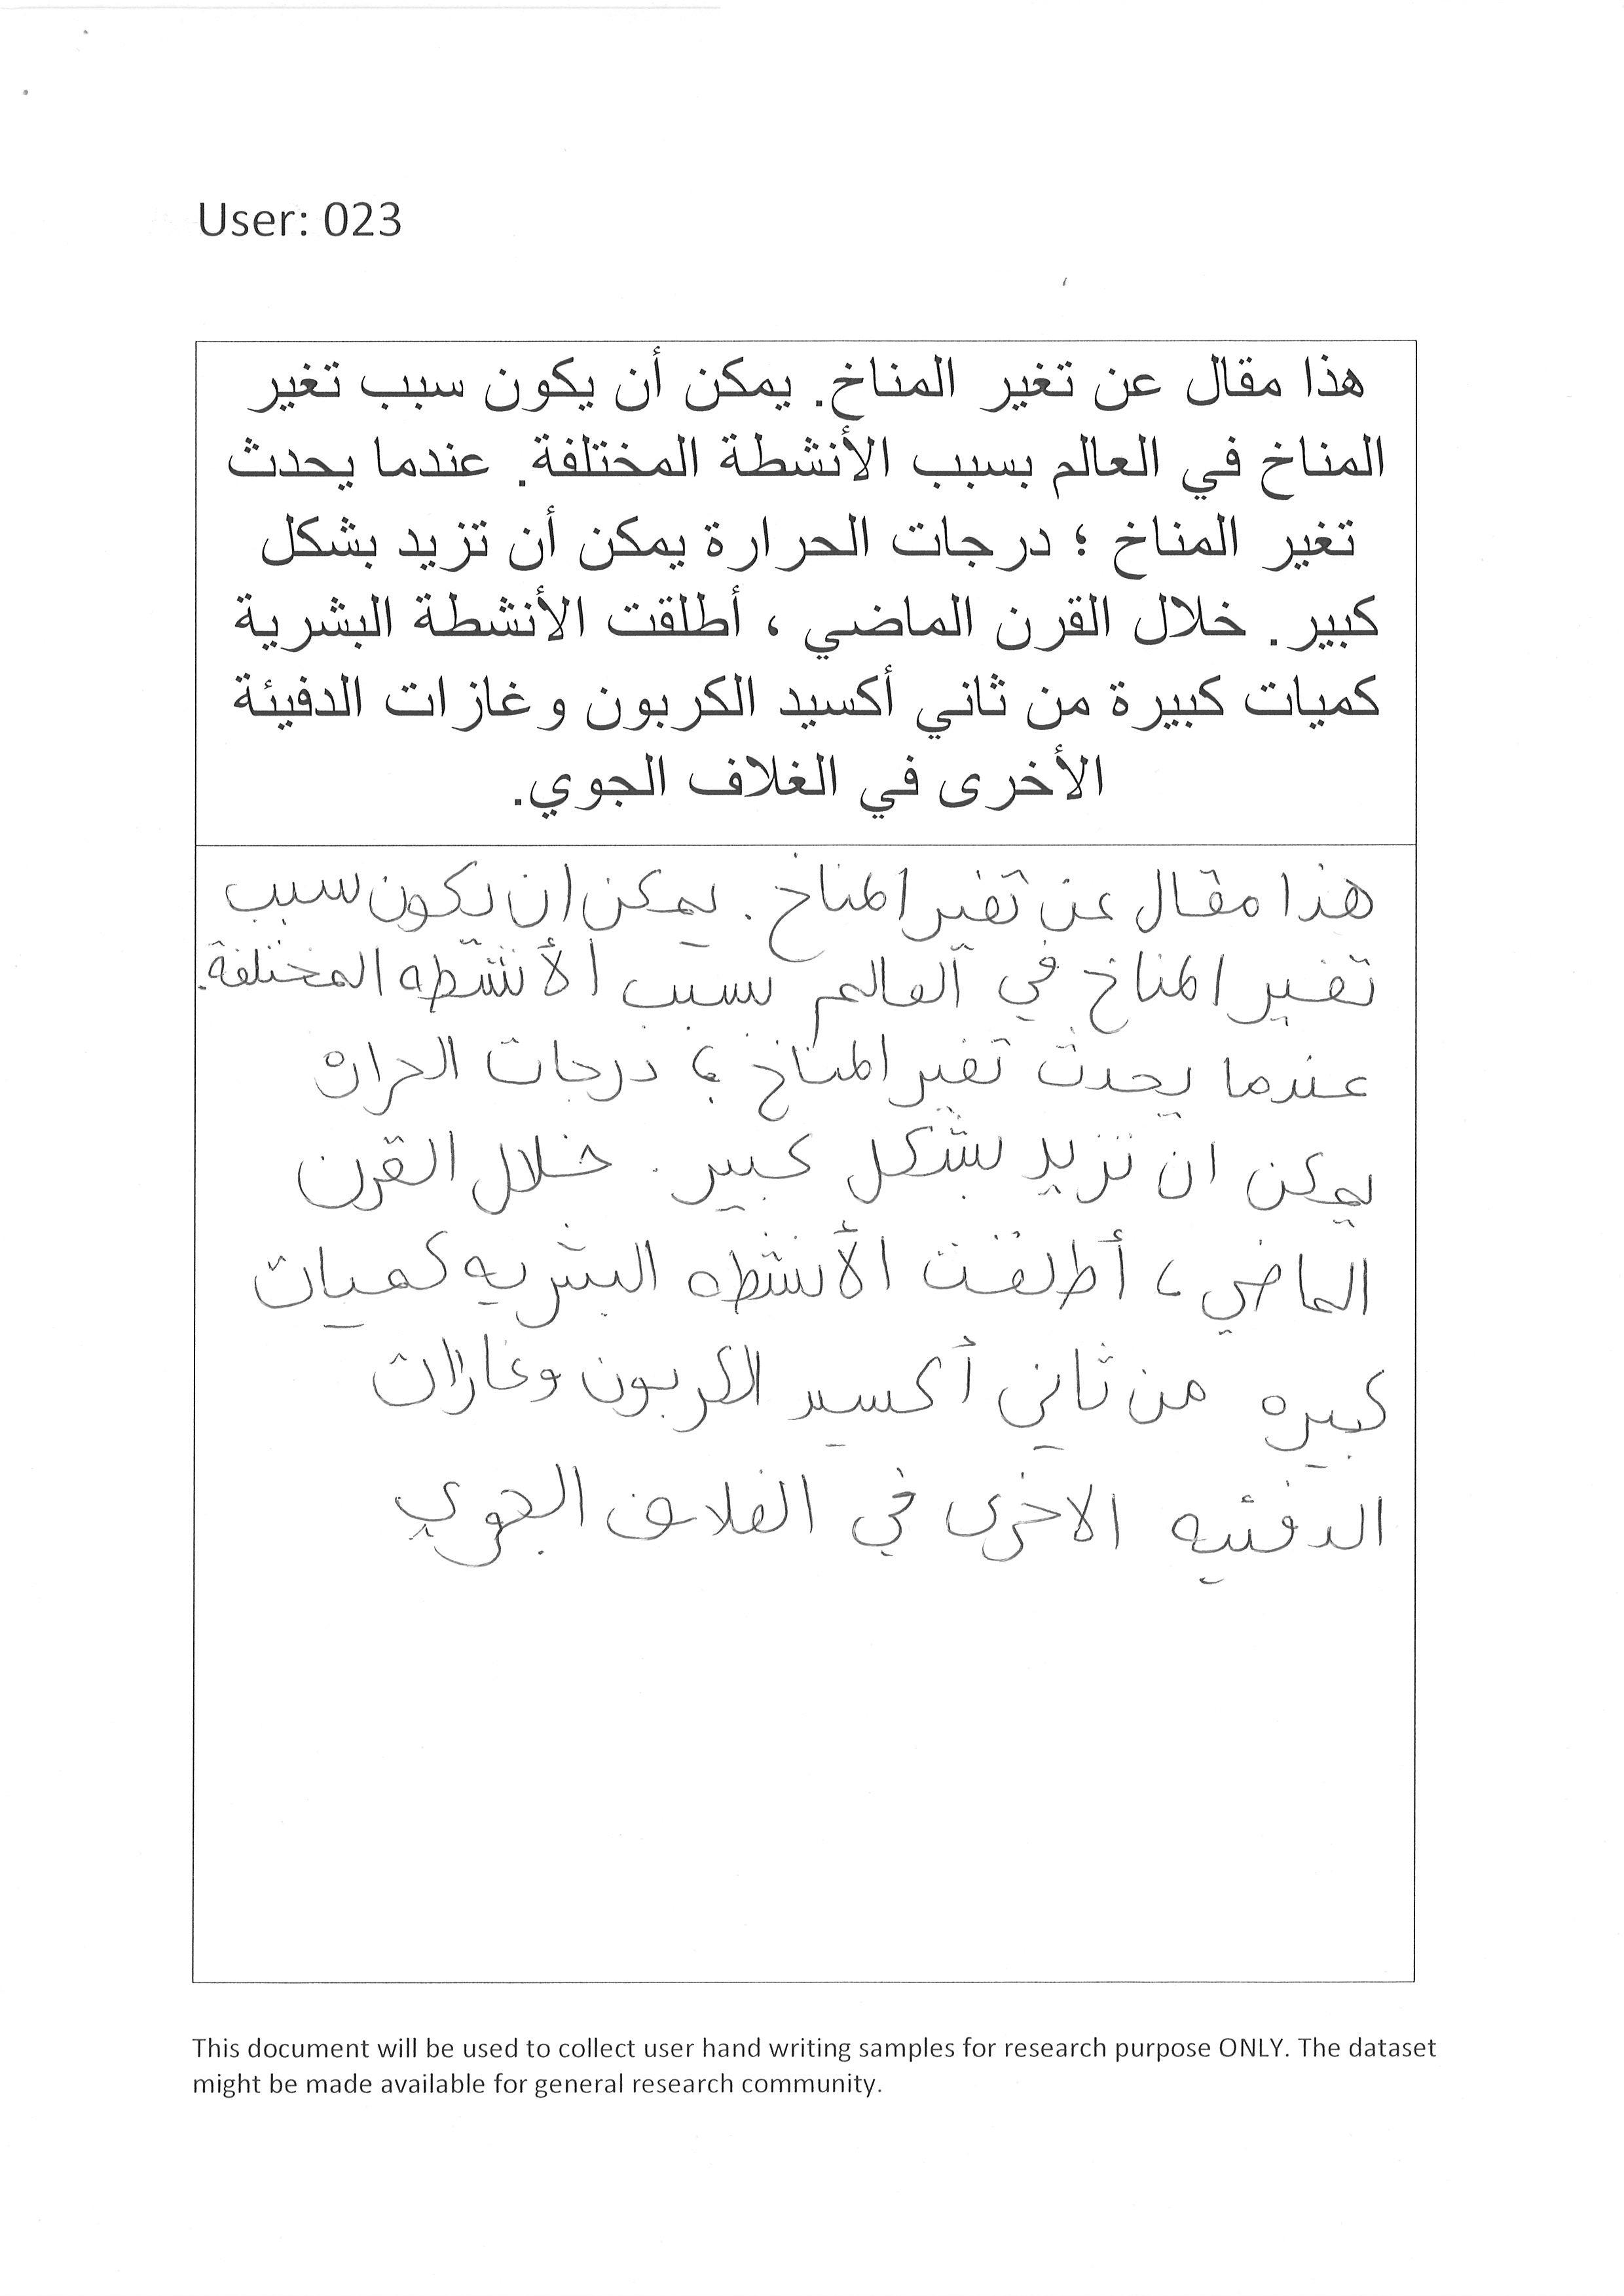 User: 023
هذا مقال عن تغير المناخ. يمكن أن يكون سبب تغير
المناخ في العالم بسبب الأنشطة المختلفة. عندما يحدث
تغير المناخ ؛ درجات الحرارة يمكن أن تزيد بشكل
كبير. خلال القرن الماضي ، أطلقت الأنشطة البشرية
كميات كبيرة من ثاني أكسيد الكربون وغازات الدفيئة
الأخرى في الغلاف الجوي.
هذا مقال عن تغير المناخ. يمكن ان يكون سبب
تغير المناخ في العالم بسبب الأنشطه المختلفة.
عندما يحدث تغير المناخ ؛ درجات الحراره
يمكن ان تزيد بشكل كبير. خلال القرن
الماضي ، أطلقت الأنشطه البشريه كميات
كبيره من ثاني أكسيد الكربون وغازات
الدفئيه الاخرى في الغلاف الجوي
This document will be used to collect user hand writing samples for research purpose ONLY. The dataset
might be made available for general research community.